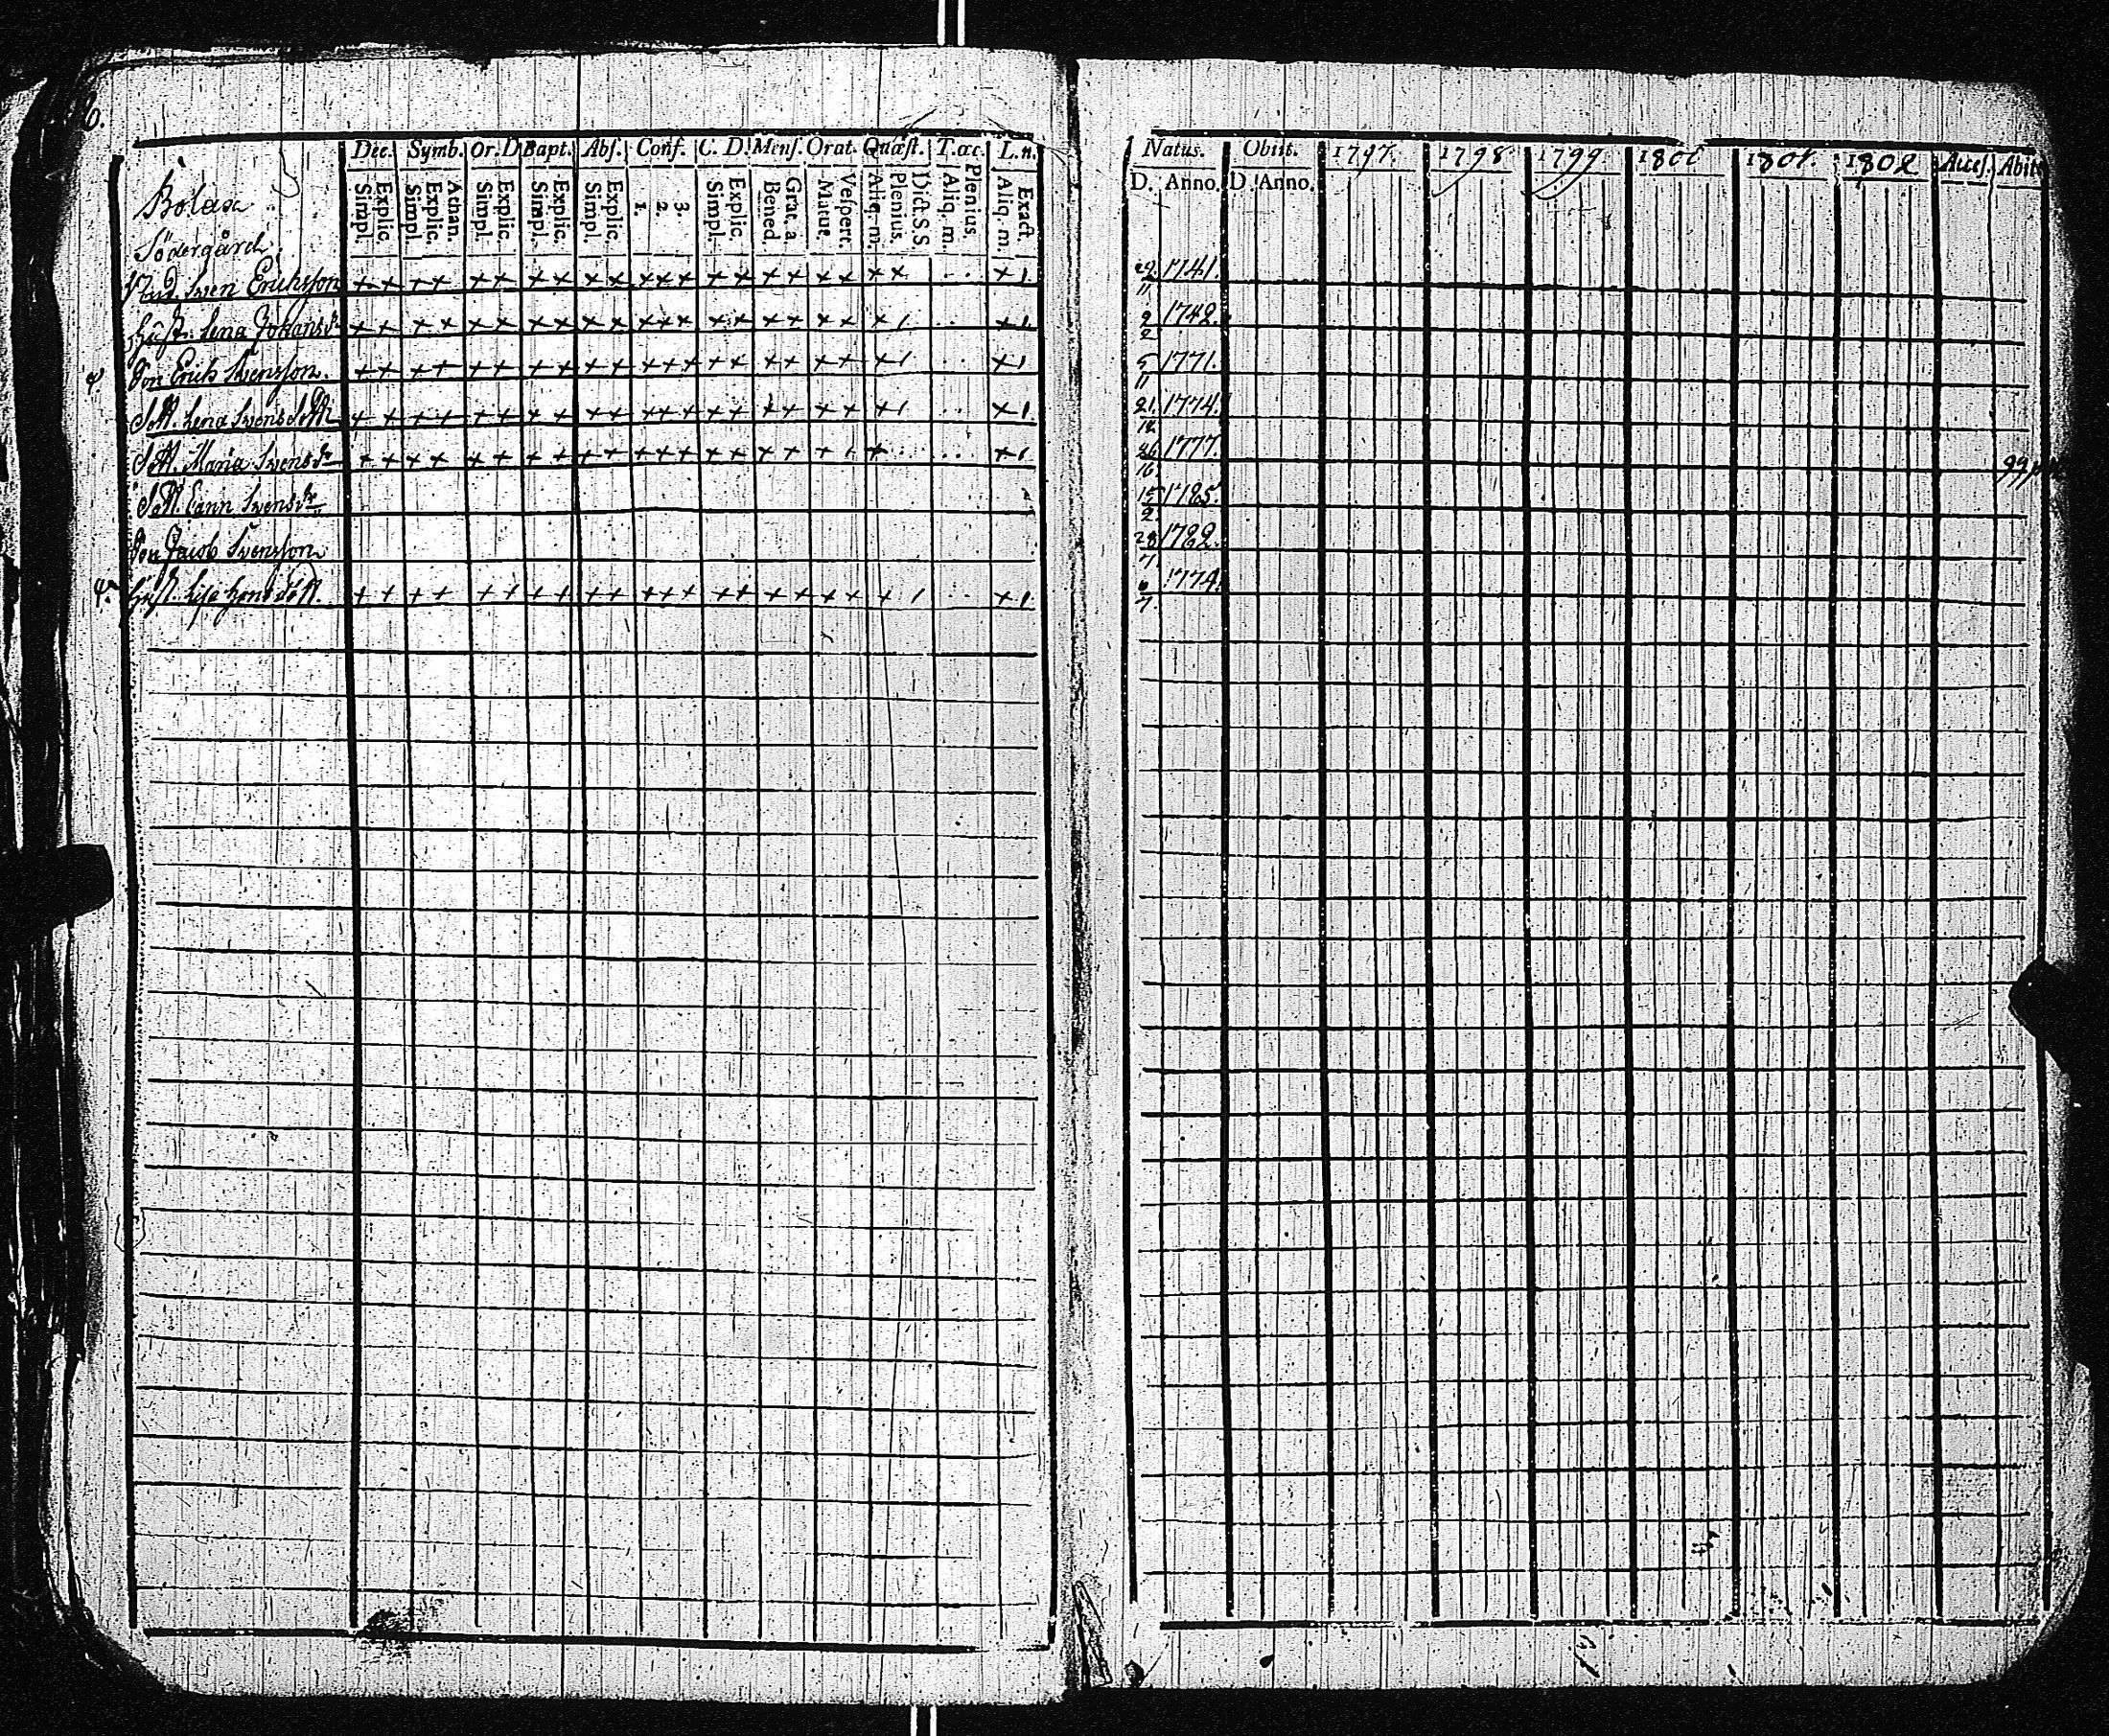 6.
Dec. Symb. Or. D. Bapt. Abs. Conf. C. D. Mens. Orat. Quæst. T. æc. L. n.
Simpl. Explic. Simpl. Explic. Athan. Simpl. Explic. Simpl. Explic. Simpl. Explic. 1. 2. 3. Simpl. Explic. Bened. Grat. a. Matut. Vespert. Aliq. m. Plenius. Dict. S. S. Aliq. m. Plenius. Aliq. m. Exact.
Södergård
Sven Ericksson + + + + + + + + + + + + + + + + + + + + + . . + 1
Hust. Lena Johansdr + + + + + + + + + + + + + + + + + + + + 1 . . + 1
Son Erick Svensson. + + + + + + + + + + + + + + + + + + + + 1 . . + 1
Dott. Lena Svensdott + + + + + + + + + + + + + + + + + + + + 1 . . + 1
Dott. Maria Svensdr + + + + + + + + + + + + + + + + + + 1 + . . . . + 1
Dott. Carin Svensdr
Son Jacob Svensson
Hust. Lisa + + + + + + + + + + + + + + + + + + + + . 1 . . + 1
Natus. Obiit. 1797. 1798 1799 1800 1801. 1802 Acces. Abiit
D. Anno. D. Anno.
29/11 1741.
2/2 1742.
5/11 1771.
21. 1774.
26 1777.
15/2. 1785
28/7. 1789.
6/7. 1774.